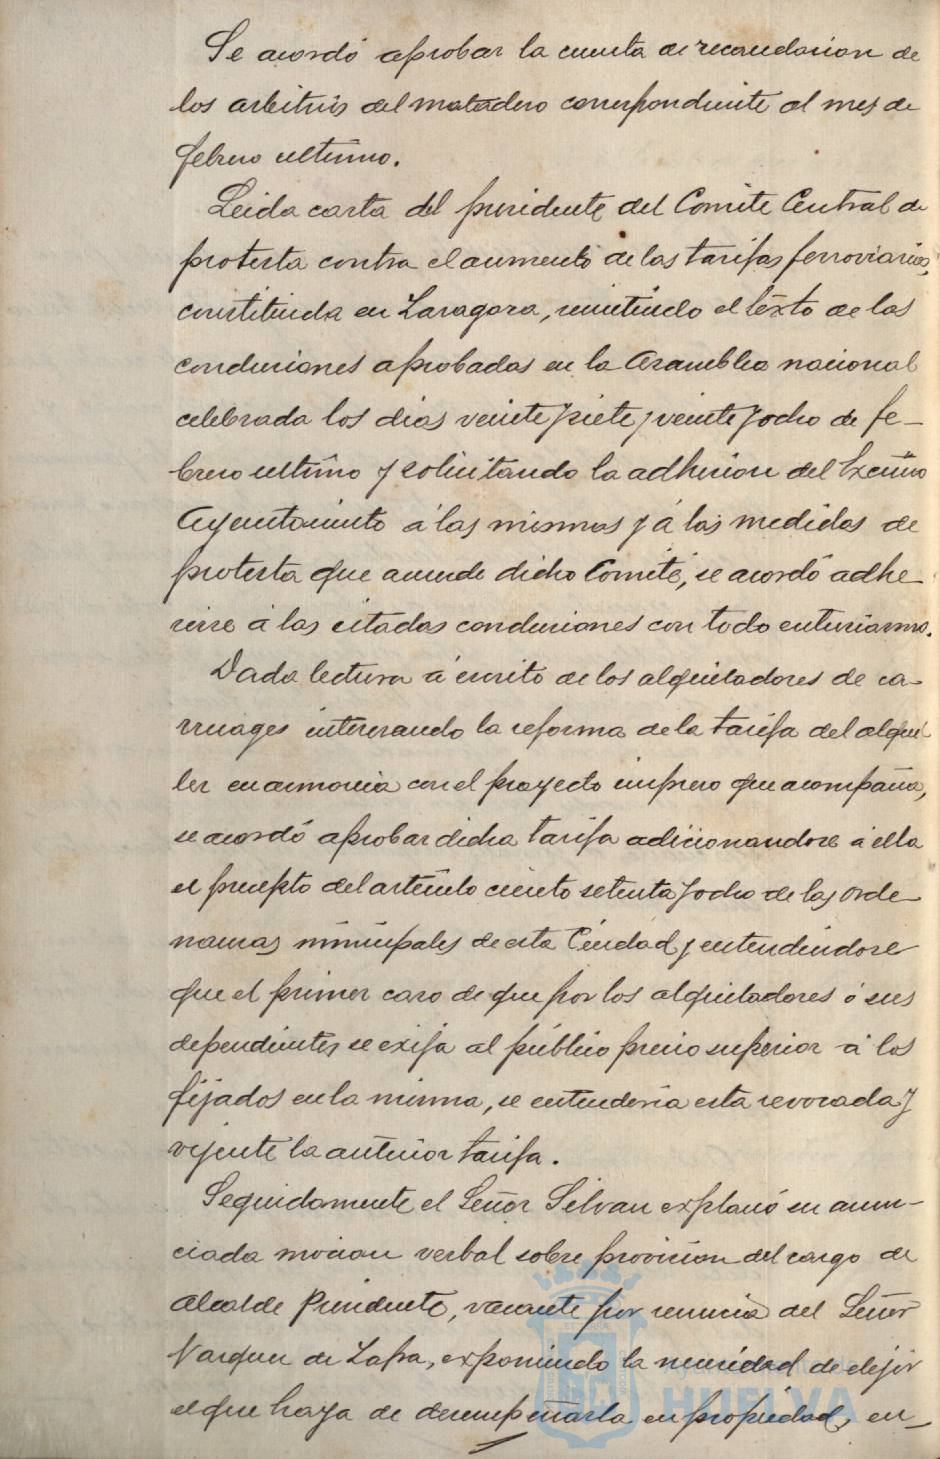 Se acordó aprobar la cuenta de recaudacion de
los arbitrios del matadero correspondiente al mes de
febrero ultimo.
Leida carta del presidente del Comite Central de
protesta contra el aumento de las tarifas ferroviarias,
constituida en Zaragoza, remitiendo el texto de las
conclusiones aprobadas en la Asamblea nacional
celebrada los dias veinte y siete y veinte y ocho de fe-
brero ultimo y solicitando la adhesion del Excmo
Ayuntamiento á las mismas y á las medidas de
protesta que acuerde dicho Comité, se acordó adhe
rirse á las citadas conclusiones con todo entusiasmo.
Dada lectura á escrito de los alquiladores de ca-
rruages interesando la reforma de la tarifa del alqui
ler en armonia con el proyecto impreso que acompaña,
se acordó aprobar dicha tarifa adicionandose á ella
el precepto del artículo ciento setenta y ocho de las Orde-
nanzas municipales de esta Ciudad y entendiendose
que el primer caso de que por los alquiladores ó sus
dependientes se exija al público precio superior á los
fijados en la misma, se entenderia esta revocada y
vijente la anterior tarifa.
Seguidamente el Señor Silvan explanó su anun-
ciada mocion verbal sobre provision del cargo de
Alcalde Presidente, vacante por renuncia del Señor
Vazquez de Zafra, exponiendo la necesidad de elejir
el que haya de desempeñarla en propiedad, en-
HUELVA